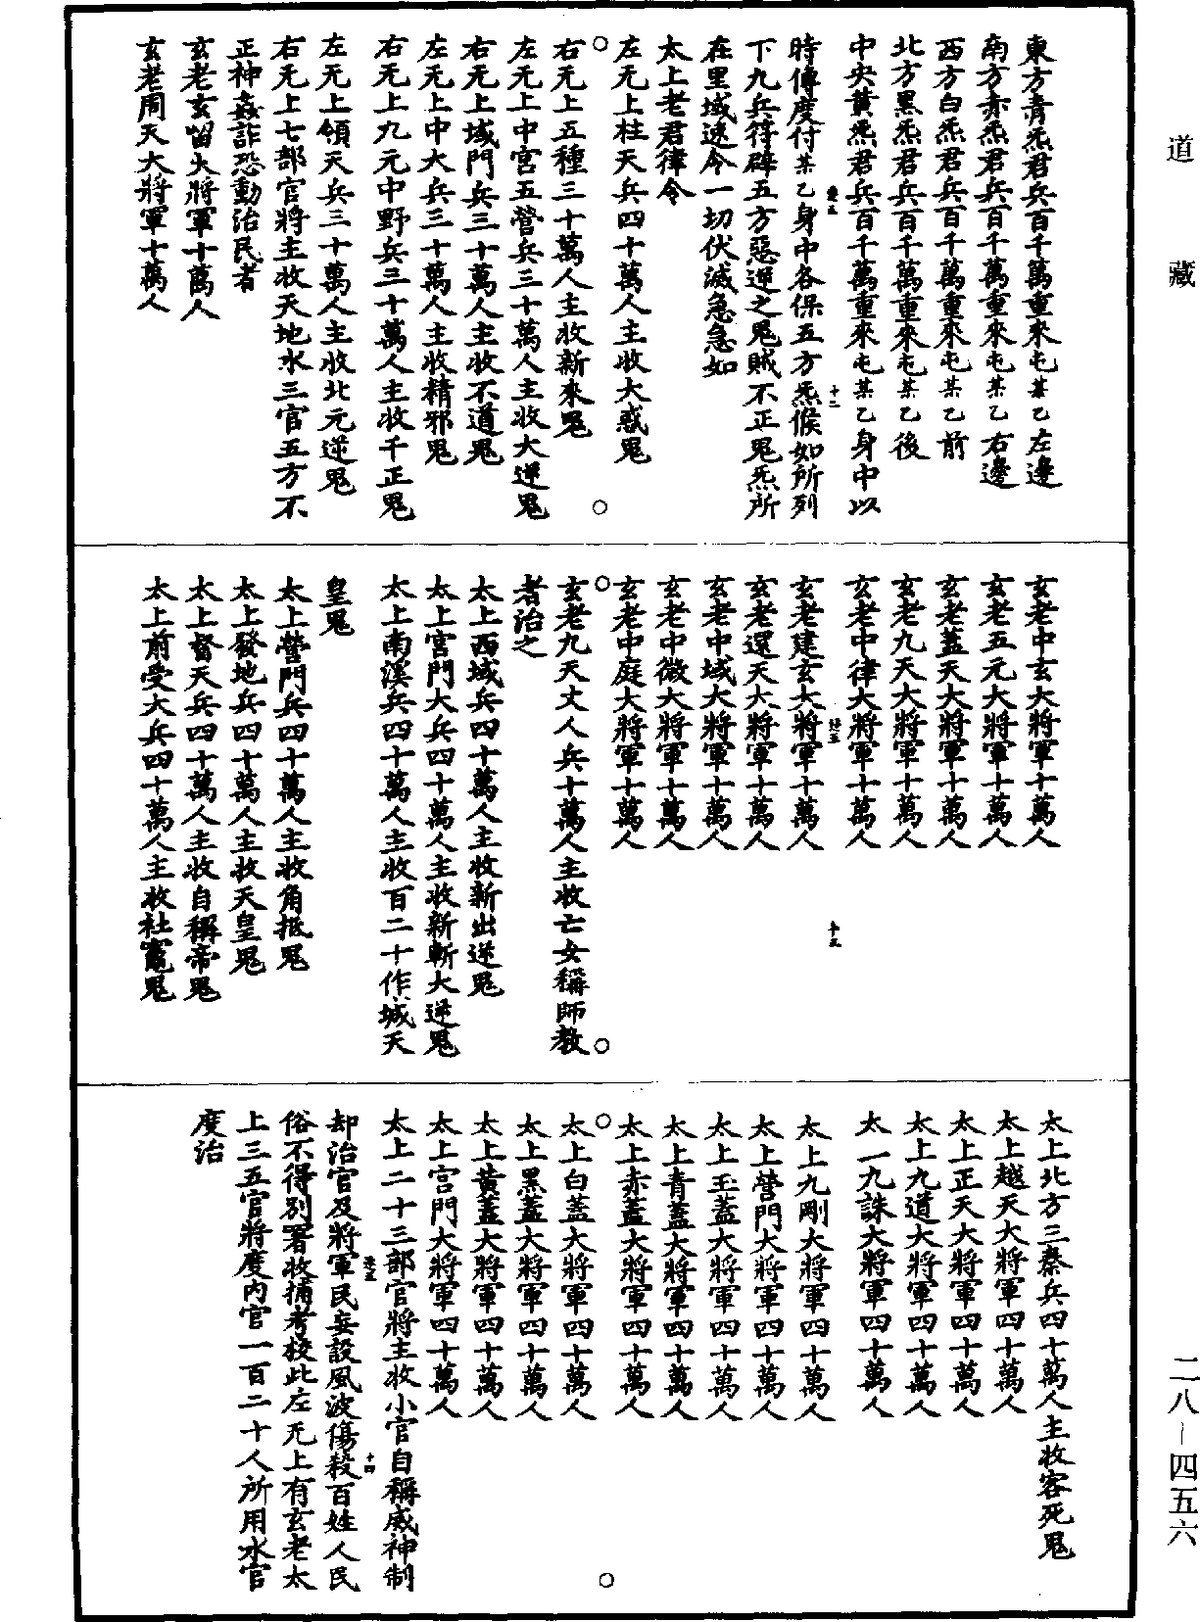 道藏
東方青炁君兵百千萬重來屯某乙左邊
南方赤炁君兵百千萬重來屯某乙右邊
西方白炁君兵百千萬重來屯某乙前
北方黑炁君兵百千萬重來屯某乙後
中央黃炁君兵百千萬重來屯某乙身中以
十二
時傳度付某乙身中各保五方炁候如所列
下九兵符辟五方惡逆之鬼賊不正鬼炁所
在里域速令一切伏滅急急如
太上老君律令
左无上柱天兵四十萬人主收大惑鬼
右无上五種三十萬人主收新來鬼
左无上中宮五營兵三十萬人主收大逆鬼
右无上域門兵三十萬人主收不道鬼
左无上中大兵三十萬人主收精邪鬼
右无上九元中野兵三十萬人主收千正鬼
左无上領天兵三十萬人主收北元逆鬼
右无上七部官將主收天地水三官五方不
正神姦詐恐動治民者
玄老玄留大將軍十萬人
玄老周天大將軍十萬人
玄老中玄大將軍十萬人
玄老五元大將軍十萬人
玄老蓋天大將軍十萬人
玄老九天大將軍十萬人
玄老中律大將軍十萬人
十三
玄老建玄大將軍十萬人
玄老還天大將軍十萬人
玄老中域大將軍十萬人
玄老中微大將軍十萬人
玄老中庭大將軍十萬人
玄老九天丈人兵十萬人主收亡女稱師教
者治之
太上西域兵四十萬人主收新出逆鬼
太上宮門大兵四十萬人主收新斬大逆鬼
太上南溪兵四十萬人主收百二十作城天
皇鬼
太上營門兵四十萬人主收角抵鬼
太上發地兵四十萬人主收天皇鬼
太上督天兵四十萬人主收自稱帝鬼
太上前受大兵四十萬人主收社竈鬼
太上北方三秦兵四十萬人主收客死鬼
太上越天大將軍四十萬人
太上正天大將軍四十萬人
太上九道大將軍四十萬人
太一九誅大將軍四十萬人
太上九剛大將軍四十萬人
太上營門大將軍四十萬人
太上玉蓋大將軍四十萬人
太上青蓋大將軍四十萬人
太上赤蓋大將軍四十萬人
太上白蓋大將軍四十萬人
太上黑蓋大將軍四十萬人
太上黃蓋大將軍四十萬人
太上宮門大將軍四十萬人
太上二十三部官將主收小官自稱威神制
十四
却治官及將軍民妄設風波傷殺百姓人民
俗不得別署收捕考校此左无上有玄老太
上三五官將度內官一百二十人所用水官
度治
二八－四五六